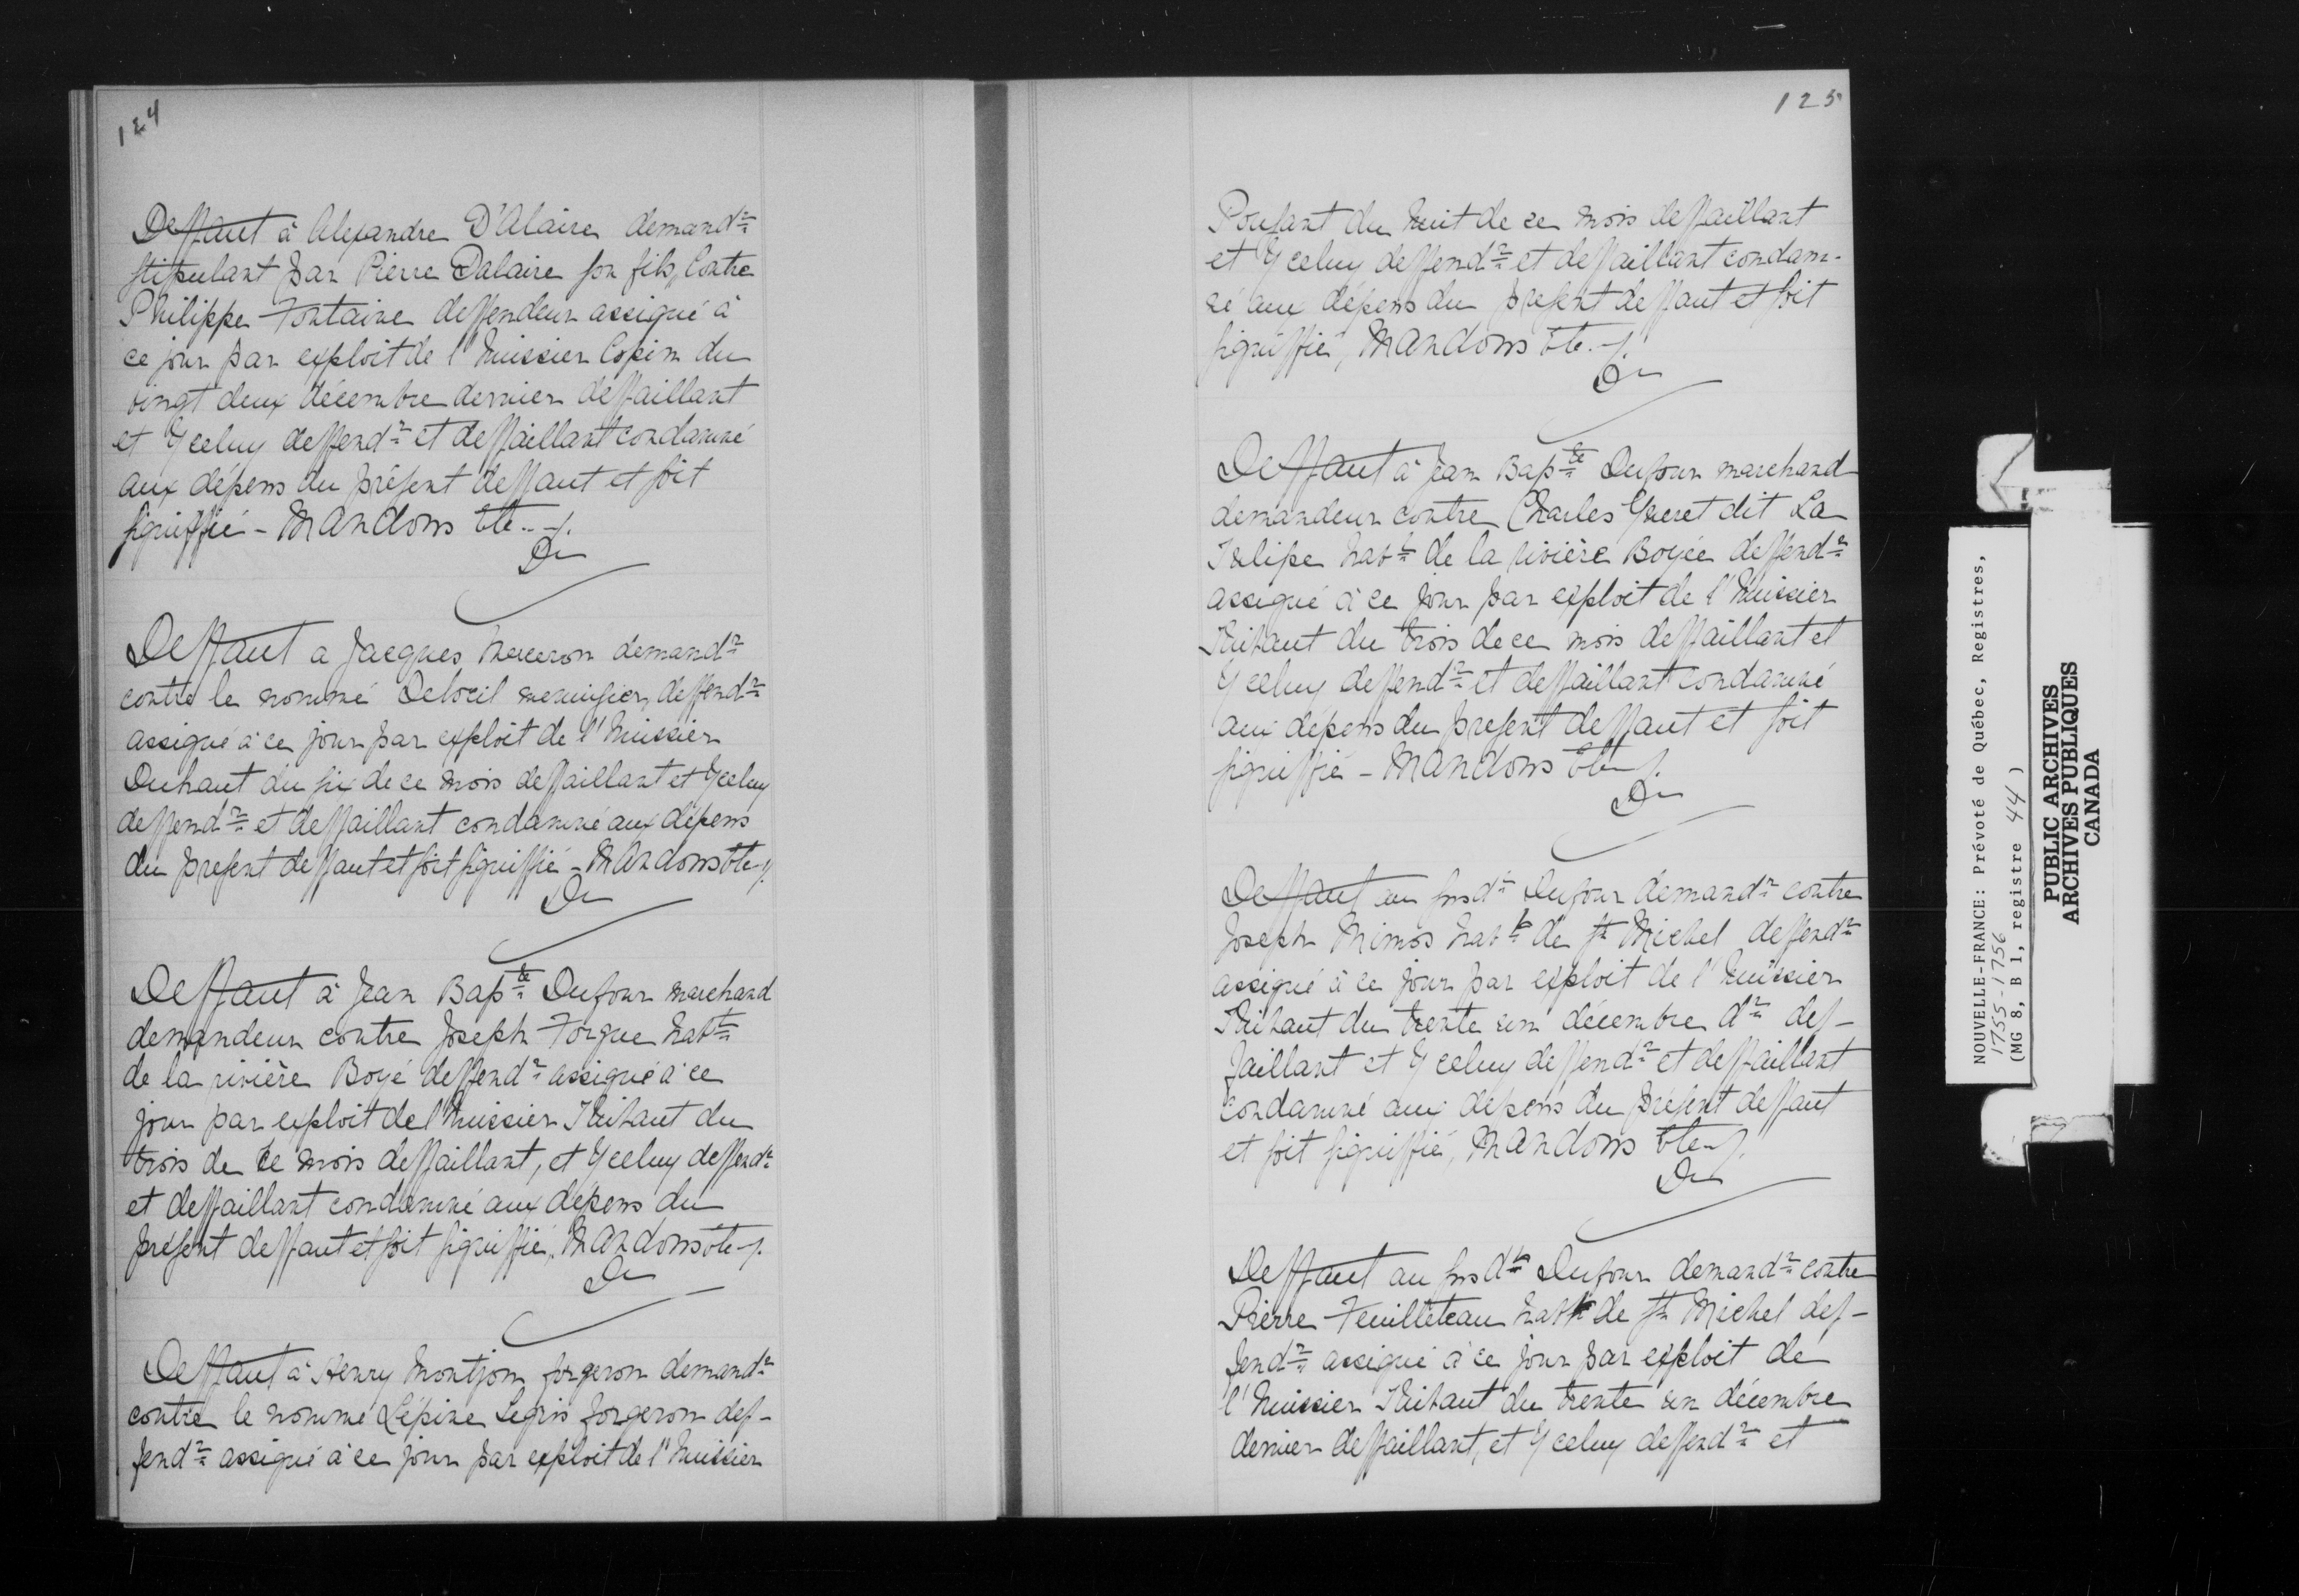 124
Deffaut à Alexandre D'Alaire demandr
stipulant par Pierre Dalaire son fils, Contre
Philippe Fontaine deffendeur assigné à
ce jour par exploit de l'huissier Copin du
vingt deux décembre dernier deffaillant
et Yceluy deffendr et deffaillant condamné
aux dépens du présent deffaut et soit
signiffié - Mandons &tc. -/.
Du
Deffaut a Jacques demandr
contre le nommé menuisier, deffendr
assigné à ce jour par exploit de l'huissier
Duhaut du six de ce mois deffaillant et Yceluy
deffendr et deffaillant condamné aux dépens
du present deffaut et soit signiffié - Mandons &tc -/.
Du
Deffaut à Jean Bapte Dufour marchand
demandeur contre Joseph Forgue habtt
de la rivière Boyé deffendr assigné à ce
jour par exploit de l'huissier du
trois de ce mois deffaillant, et Yceluy deffendr
et deffaillant condamné aux dépens du
présent deffaut et soit signiffié, Mandons &tc -/.
Du
Deffaut à Henry Montjon forgeron demandr
contre le nommé Lépine Legris forgeron def-
fendr assigné à ce jour par exploit de l'huissier
125
du huit de ce mois deffaillant
et Yceluy deffendr et deffaillant condam-
né aux dépens du present deffaut et soit
signiffié, Mandons &tc. -/.
Du
Deffaut à Jean Bapte Dufour marchand
demandeur contre Charles dit La
habtt de la rivière Boyée deffendr
assigné à ce jour par exploit de l'huissier
du trois de ce mois deffaillant et
Yceluy deffendr et deffaillant condamné
aux dépens du present deffaut et soit
signiffié - Mandons &tc -/.
Du
Deffaut au susdt Dufour demandr contre
Joseph habtt de St Michel deffendr
assigné à ce jour par exploit de l'huissier
du trente un décembre dr def-
faillant et Yceluy deffendr et deffaillant
condamné aux dépens du présent deffaut
et soit signiffié, Mandons &tc -/.
Du
Deffaut au susdt Dufour demandr contre
Pierre Feuilleteau habtt de St Michel def-
fendr assigné à ce jour par exploit de
l'huissier du trente un décembre
dernier deffaillant, et Yceluy deffendr et
NOUVELLE-FRANCE: Prévoté de Québec, Registres,
1755-1756
(MG 8, B 1, registre 44 )
PUBLIC ARCHIVES
ARCHIVES PUBLIQUES
CANADA